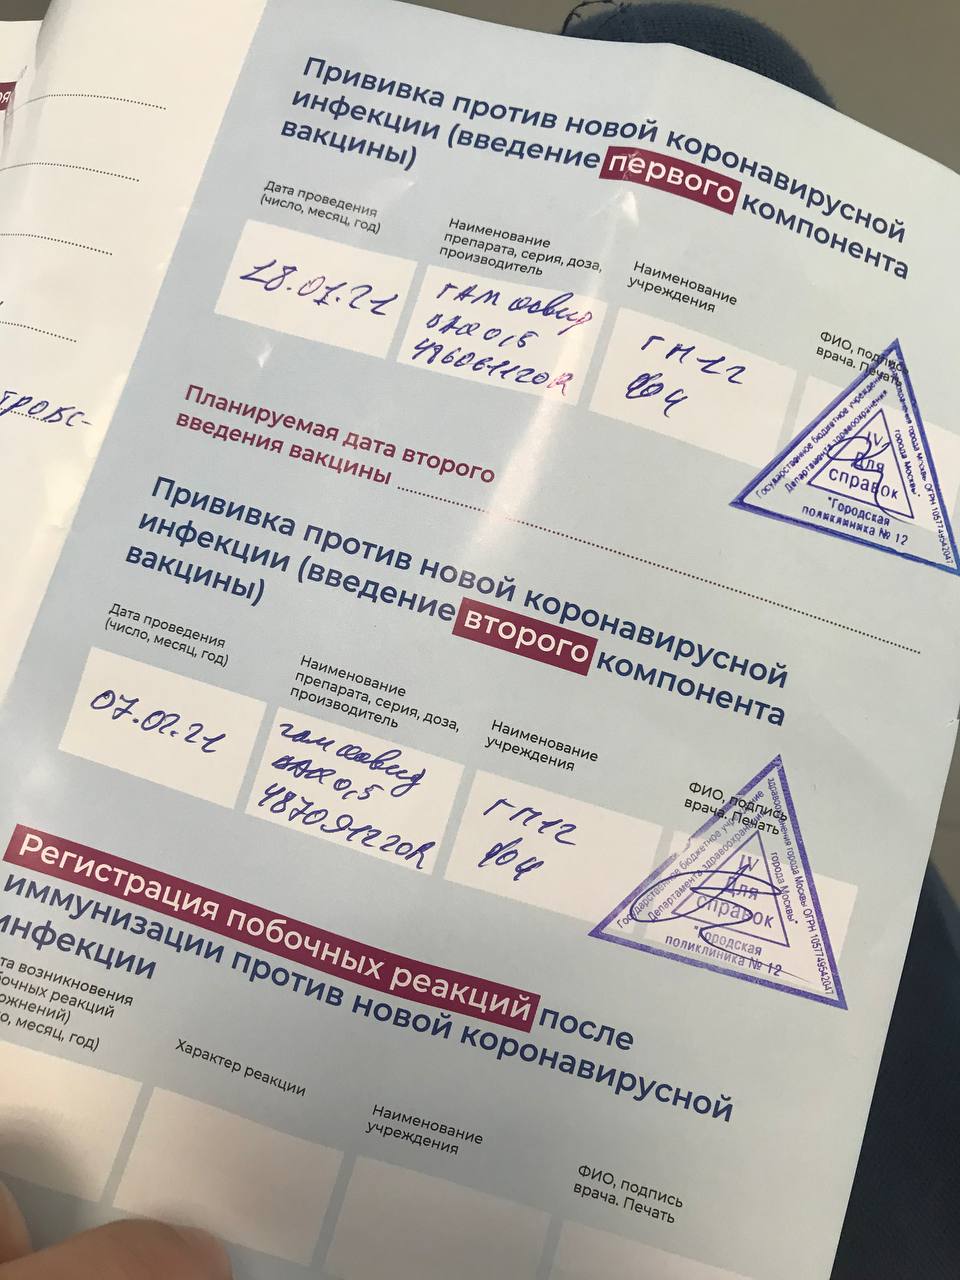 Прививка против новой коронавирусной
инфекции (введение первого компонента
вакцины)
Дата проведения
(число, месяц, год)
Наименование
препарата, серия, доза,
производитель
Наименование
учреждения
ФИО, подпись
врача. Печать
18.01.21
ГАМ ковид
ВАК 0,5
ГП 12
Государственное бюджетное учреждение здравоохранения города Москвы ОГРН 1057749542047
Департамента здравоохранения города Москвы"
IV
Для
справок
"Городская
поликлиника № 12
Планируемая дата второго
введения вакцины
Прививка против новой коронавирусной
инфекции (введение второго компонента
вакцины)
Дата проведения
(число, месяц, год)
Наименование
препарата, серия, доза,
производитель
Наименование
учреждения
ФИО, подпись
врача. Печать
07.02.21
гам ковид
ВАК 0,5
ГП 12
Государственное бюджетное учреждение здравоохранения города Москвы ОГРН 1057749542047
Департамента здравоохранения города Москвы"
IV
Для
справок
"Городская
поликлиника № 12
Регистрация побочных реакций после
иммунизации против новой коронавирусной
инфекции
возникновения
реакций
месяц, год)
Характер реакции
Наименование
учреждения
ФИО, подпись
врача. Печать